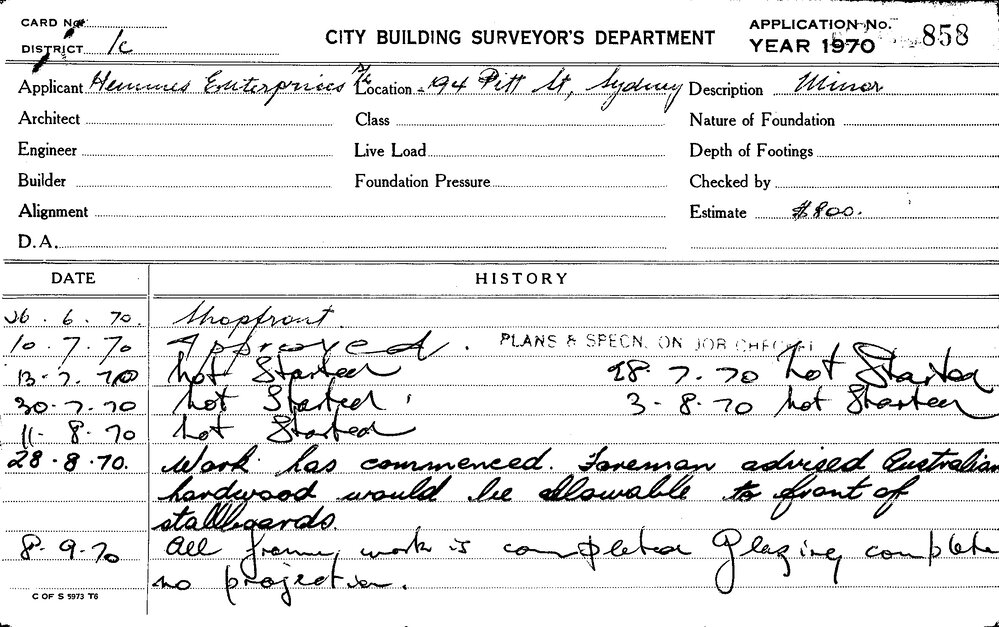 CARD No.
DISTRICT 1c
CITY BUILDING SURVEYOR'S DEPARTMENT
APPLICATION No. 858
YEAR 1970
Applicant Hemmes Enterprises P/L Location 194 Pitt St, Sydney Description Minor
Architect Class Nature of Foundation
Engineer Live Load Depth of Footings
Builder Foundation Pressure Checked by
Alignment Estimate $800.
D.A.
DATE HISTORY
26.6.70. Shopfront.
10.7.70 Approved. PLANS & SPECN. ON JOB CHECKED
13.7.70 not Started 28.7.70 not Started
30.7.70 not Started. 3-8.70 not Started
11-8.70 not Started
28.8.70. Work has commenced. Foreman advised Australian
hardwood would be allowable to front of
stallboards.
8.9.70 All frame work is completed Glazing complete
no projection.
C OF S 5973 T6